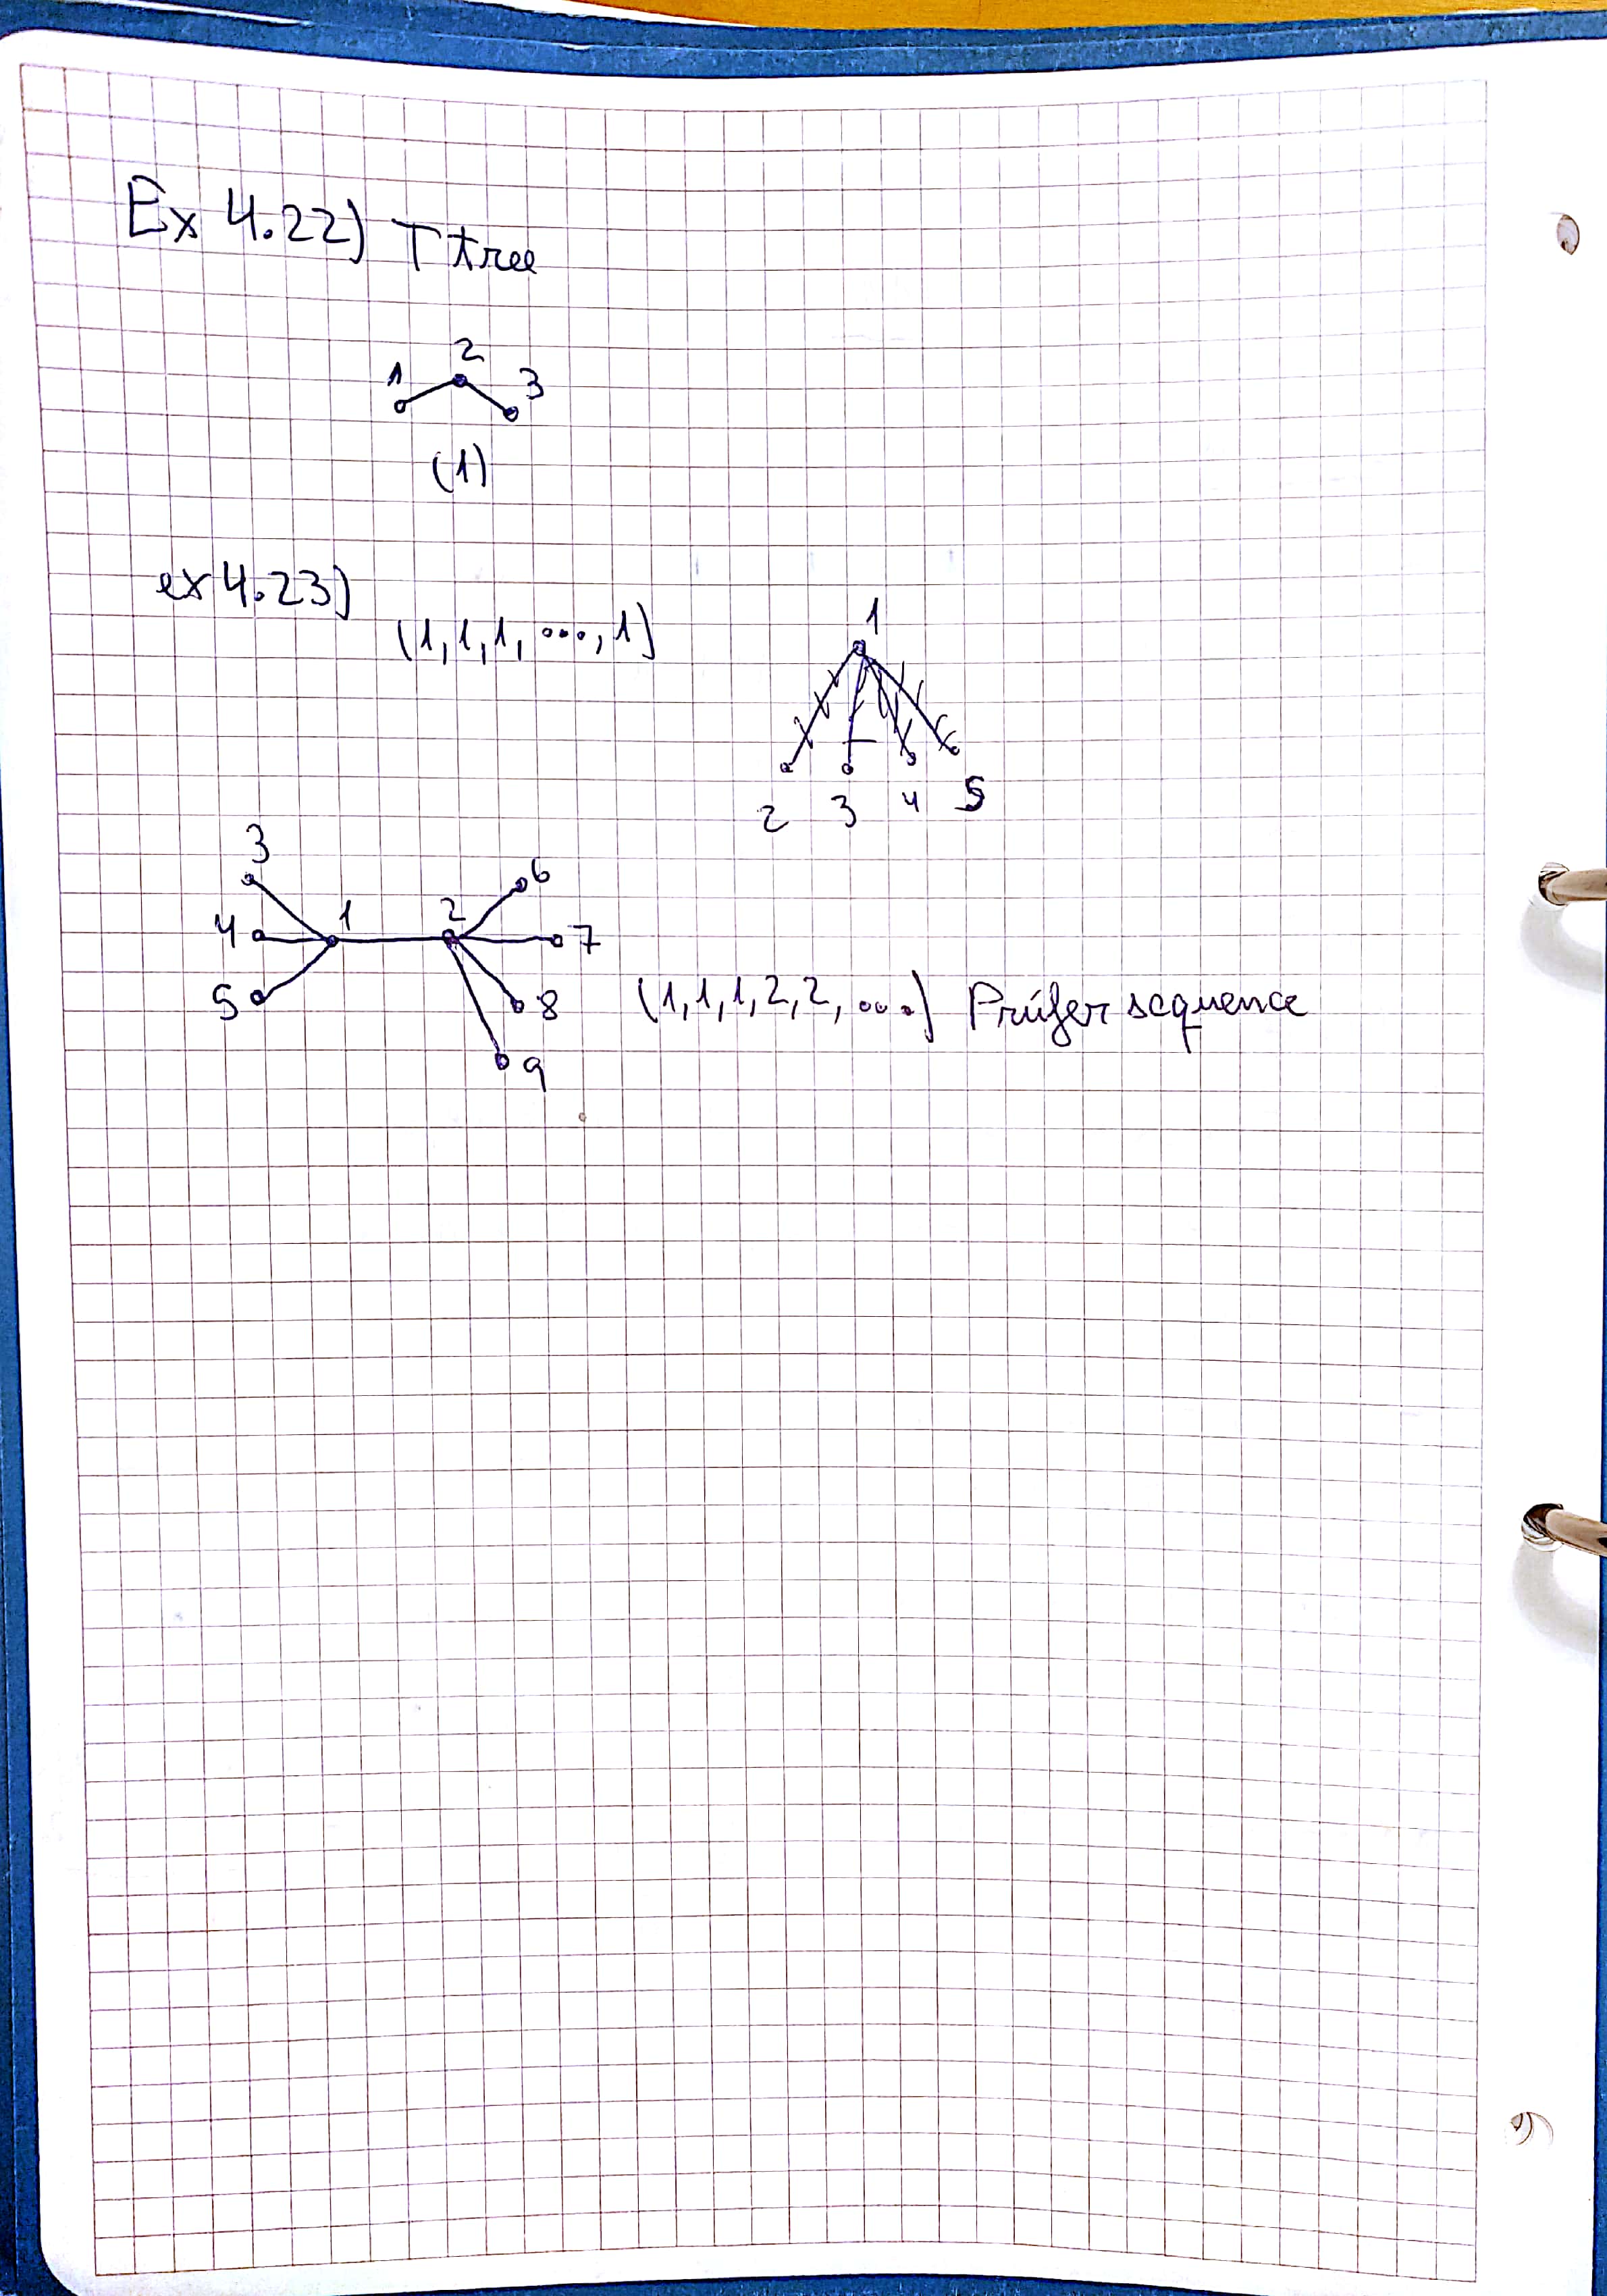 Ex 4.22) T tree
2
1 3
(1)
ex 4.23)
(1,1,1, ..., 1)
1
2 3 4 5
3
6
4 1 2 7
5 8
(1,1,1,2,2, ...) Prüfer sequence
9